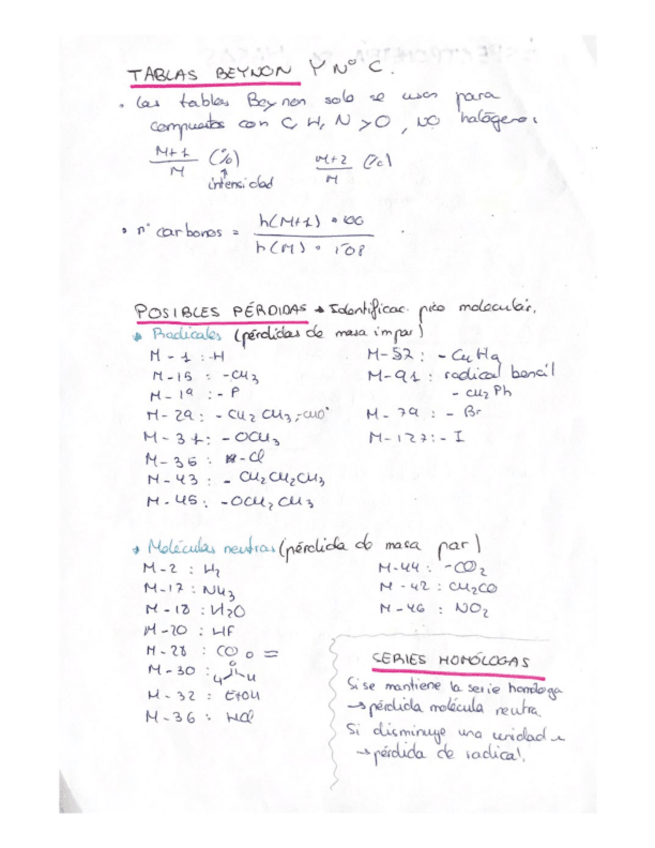 TABLAS BEYNON Y Nº C.
• Las tablas Beynon solo se usan para
compuestos con C, H, N y O, NO halógenos
M+1 / M (%) M+2 / M (%)
↑ intensidad
• nº carbonos = h(M+1) • 100 / h(M) • 1'08
POSIBLES PÉRDIDAS → Identificac. pico molecular.
Radicales (pérdidas de masa impar)
M-1: -H
M-15: -CH3
M-19: -F
M-29: -CH2CH3, -CHO•
M-31: -OCH3
M-35: -Cl
M-43: -CH2CH2CH3
M-45: -OCH2CH3
M-57: -C4H9
M-91: radical bencil
- CH2Ph
M-79: -Br
M-127: -I
Moléculas neutras (pérdida de masa par)
M-2: H2
M-17: NH3
M-18: H2O
M-20: HF
M-28: CO o =
M-30: H H O
M-32: EtOH
M-36: HCl
M-44: -CO2
M-42: CH2CO
M-46: NO2
SERIES HOMÓLOGAS
Si se mantiene la serie homóloga
→ pérdida molécula neutra.
Si disminuye una unidad
→ pérdida de radical.